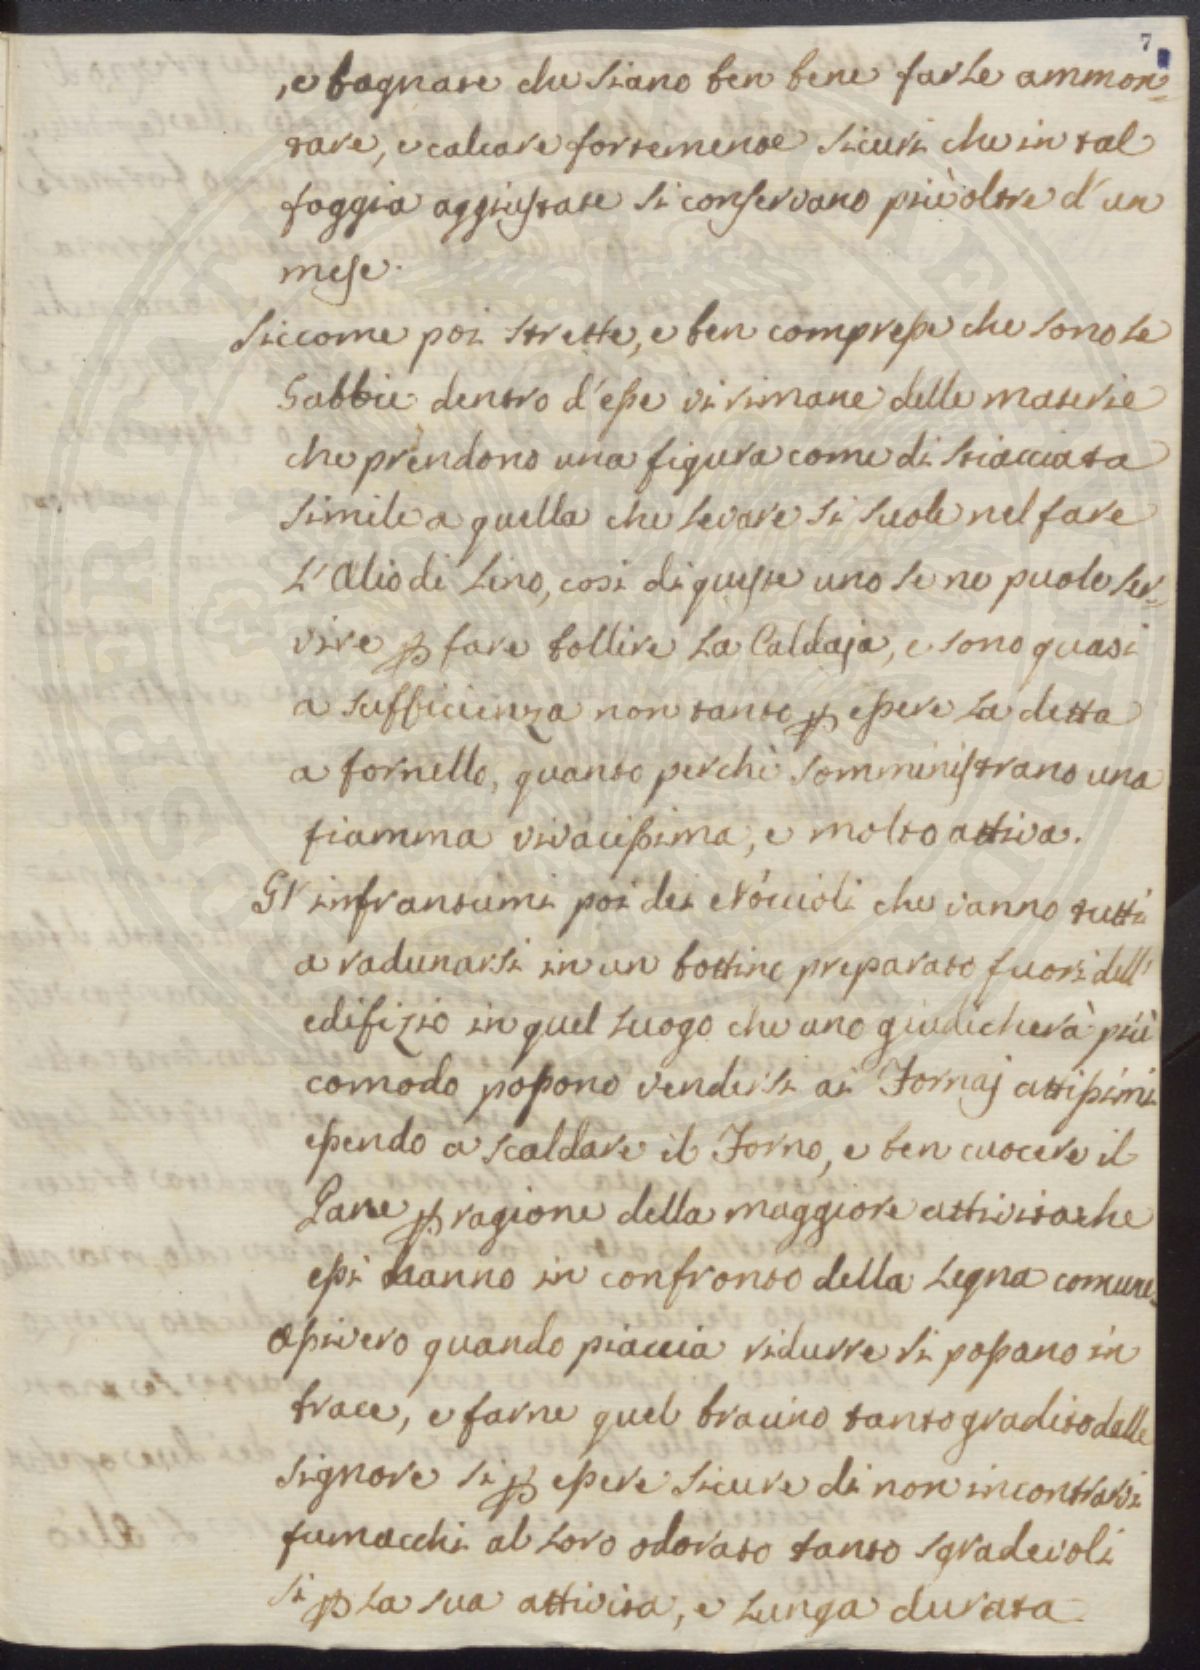 7
, e bagnate che siano ben bene farle ammon=
tare, e calcare fortemente sicuri che in tal
foggia aggiustate si conservano più oltre d'un
mese.
Siccome poi strette, e ben compresse che sono le
Gabbie dentro d'esse vi rimane delle materie
che prendono una figura come di stiacciata
simile a quella che levare si suole nel fare
L'Olio di Lino, così di queste uno se ne puole ser=
vire p fare bollire la Caldaja, e sono quasi
a sufficienza non tanto p essere la detta
a fornello, quanto perchè somministrano una
fiamma vivacissima, e molto attiva.
Gl' infrantumi poi dei Nòccioli che vanno tutti
a radunarsi in un bottino preparato fuori dell'
edifizio in quel luogo che uno giudicherà più
comodo possono vendersi ai Fornaj attissimi
essendo a scaldare il Forno, e ben cuocere il
Pane p ragione della maggiore attività che
essi hanno in confronto della Legna comune.
Ossivero quando piaccia ridurre si possano in
brace, e farne quel bracino tanto gradito dalle
signore si p essere sicure di non incontrarvi
fumacchi al loro odorato tanto sgradevoli
si p la sua attività, e lunga durata
SOSPIRITI